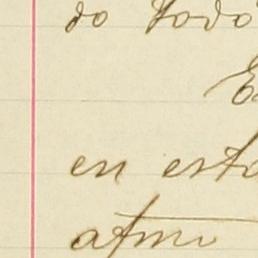 do todo
E
en esta
afmo